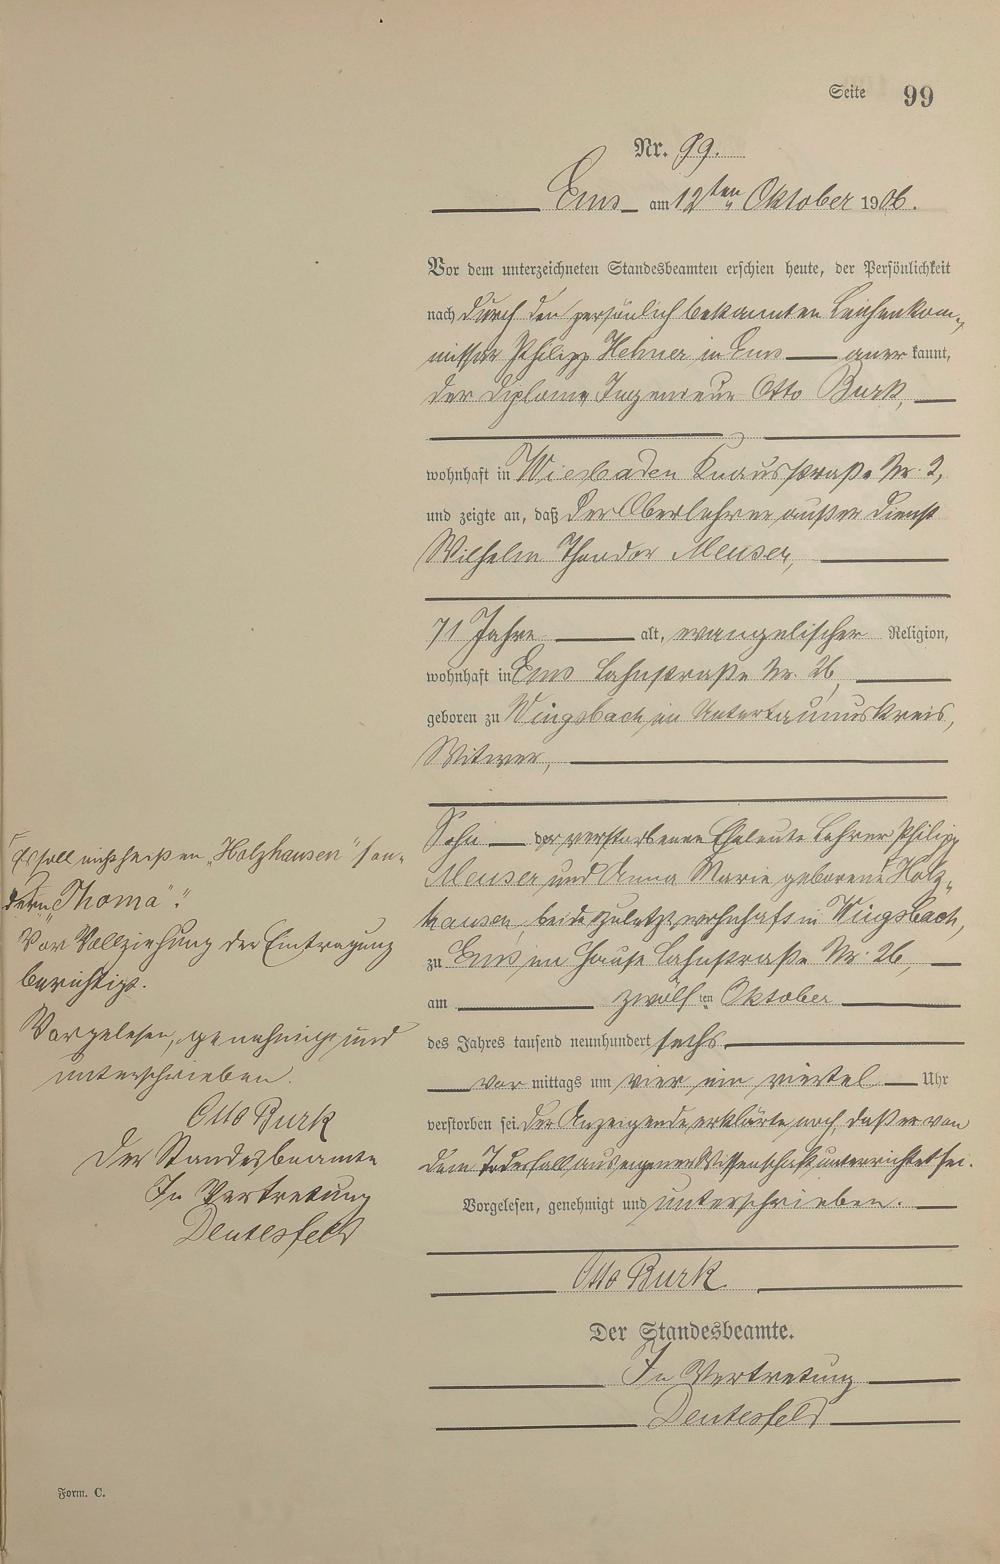 Seite 99
Nr. 99.
Ems am 12ten Oktober 1906.
Vor dem unterzeichneten Standesbeamten erschien heute, der Persönlichkeit
nach durch den persönlich bekannten Leichenkom-
missar Philipp Hehner in Ems anerkannt,
der Diplom Ingenieur Otto Burk,
wohnhaft in Wiesbaden Knausstraße Nr. 2,
und zeigte an, daß der Oberlehrer außer Dienst
Wilhelm Theodor Meuser,
71 Jahre alt, evangelischer Religion,
wohnhaft in Ems Lahnstraße Nr. 26,
geboren zu Wingsbach im Untertaunuskreis,
Witwer,
Sohn der verstorbenen Eheleute Lehrer Philipp
Meuser und Anna Marie geborene Holz-
hausen, beide zuletzt wohnhaft in Wingsbach,
zu Ems, im Hause Lahnstraße Nr. 26,
am zwölften Oktober
des Jahres tausend neunhundert sechs
vormittags um vier ein viertel Uhr
verstorben sei. Der Anzeigende erklärte noch, daß er von
dem Todesfall aus eigener Wissenschaft unterrichtet sei.
Vorgelesen, genehmigt und unterschrieben.
Otto Burk
Der Standesbeamte.
In Vertretung
Dentesfeld
Es soll nicht heißen „Holzhausen" son-
dern „Thoma".
Vor Vollziehung der Eintragung
berichtigt.
Vorgelesen, genehmigt und
unterschrieben.
Otto Burk
Der Standesbeamte
In Vertretung
Dentesfeld
Form. C.